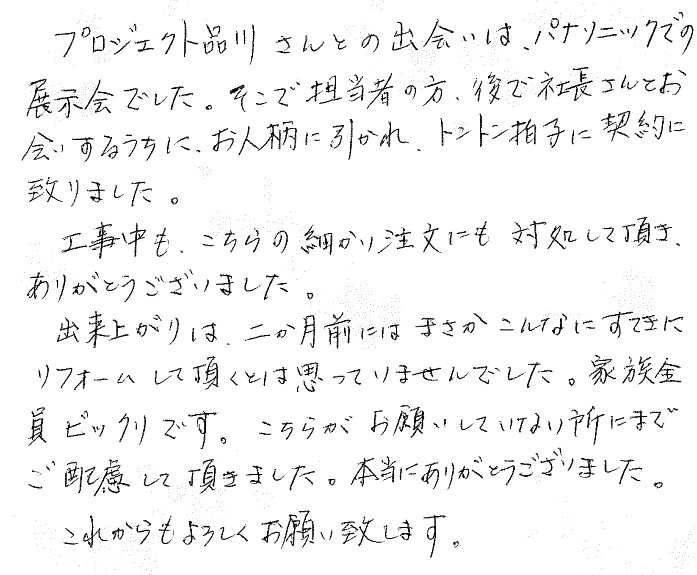 プロジェクト品川さんとの出会いは、パナソニックでの
展示会でした。そこで担当者の方、後で社長さんとお
会いするうちに、お人柄に引かれ、トントン拍子に契約に
致りました。
工事中も、こちらの細かい注文にも対処して頂き、
ありがとうございました。
出来上がりは、二か月前にはまさかこんなにすてきに
リフォームして頂くとは思っていませんでした。家族全
員ビックリです。こちらがお願いしていない所にまで
ご配慮して頂きました。本当にありがとうございました。
これからもよろしくお願い致します。